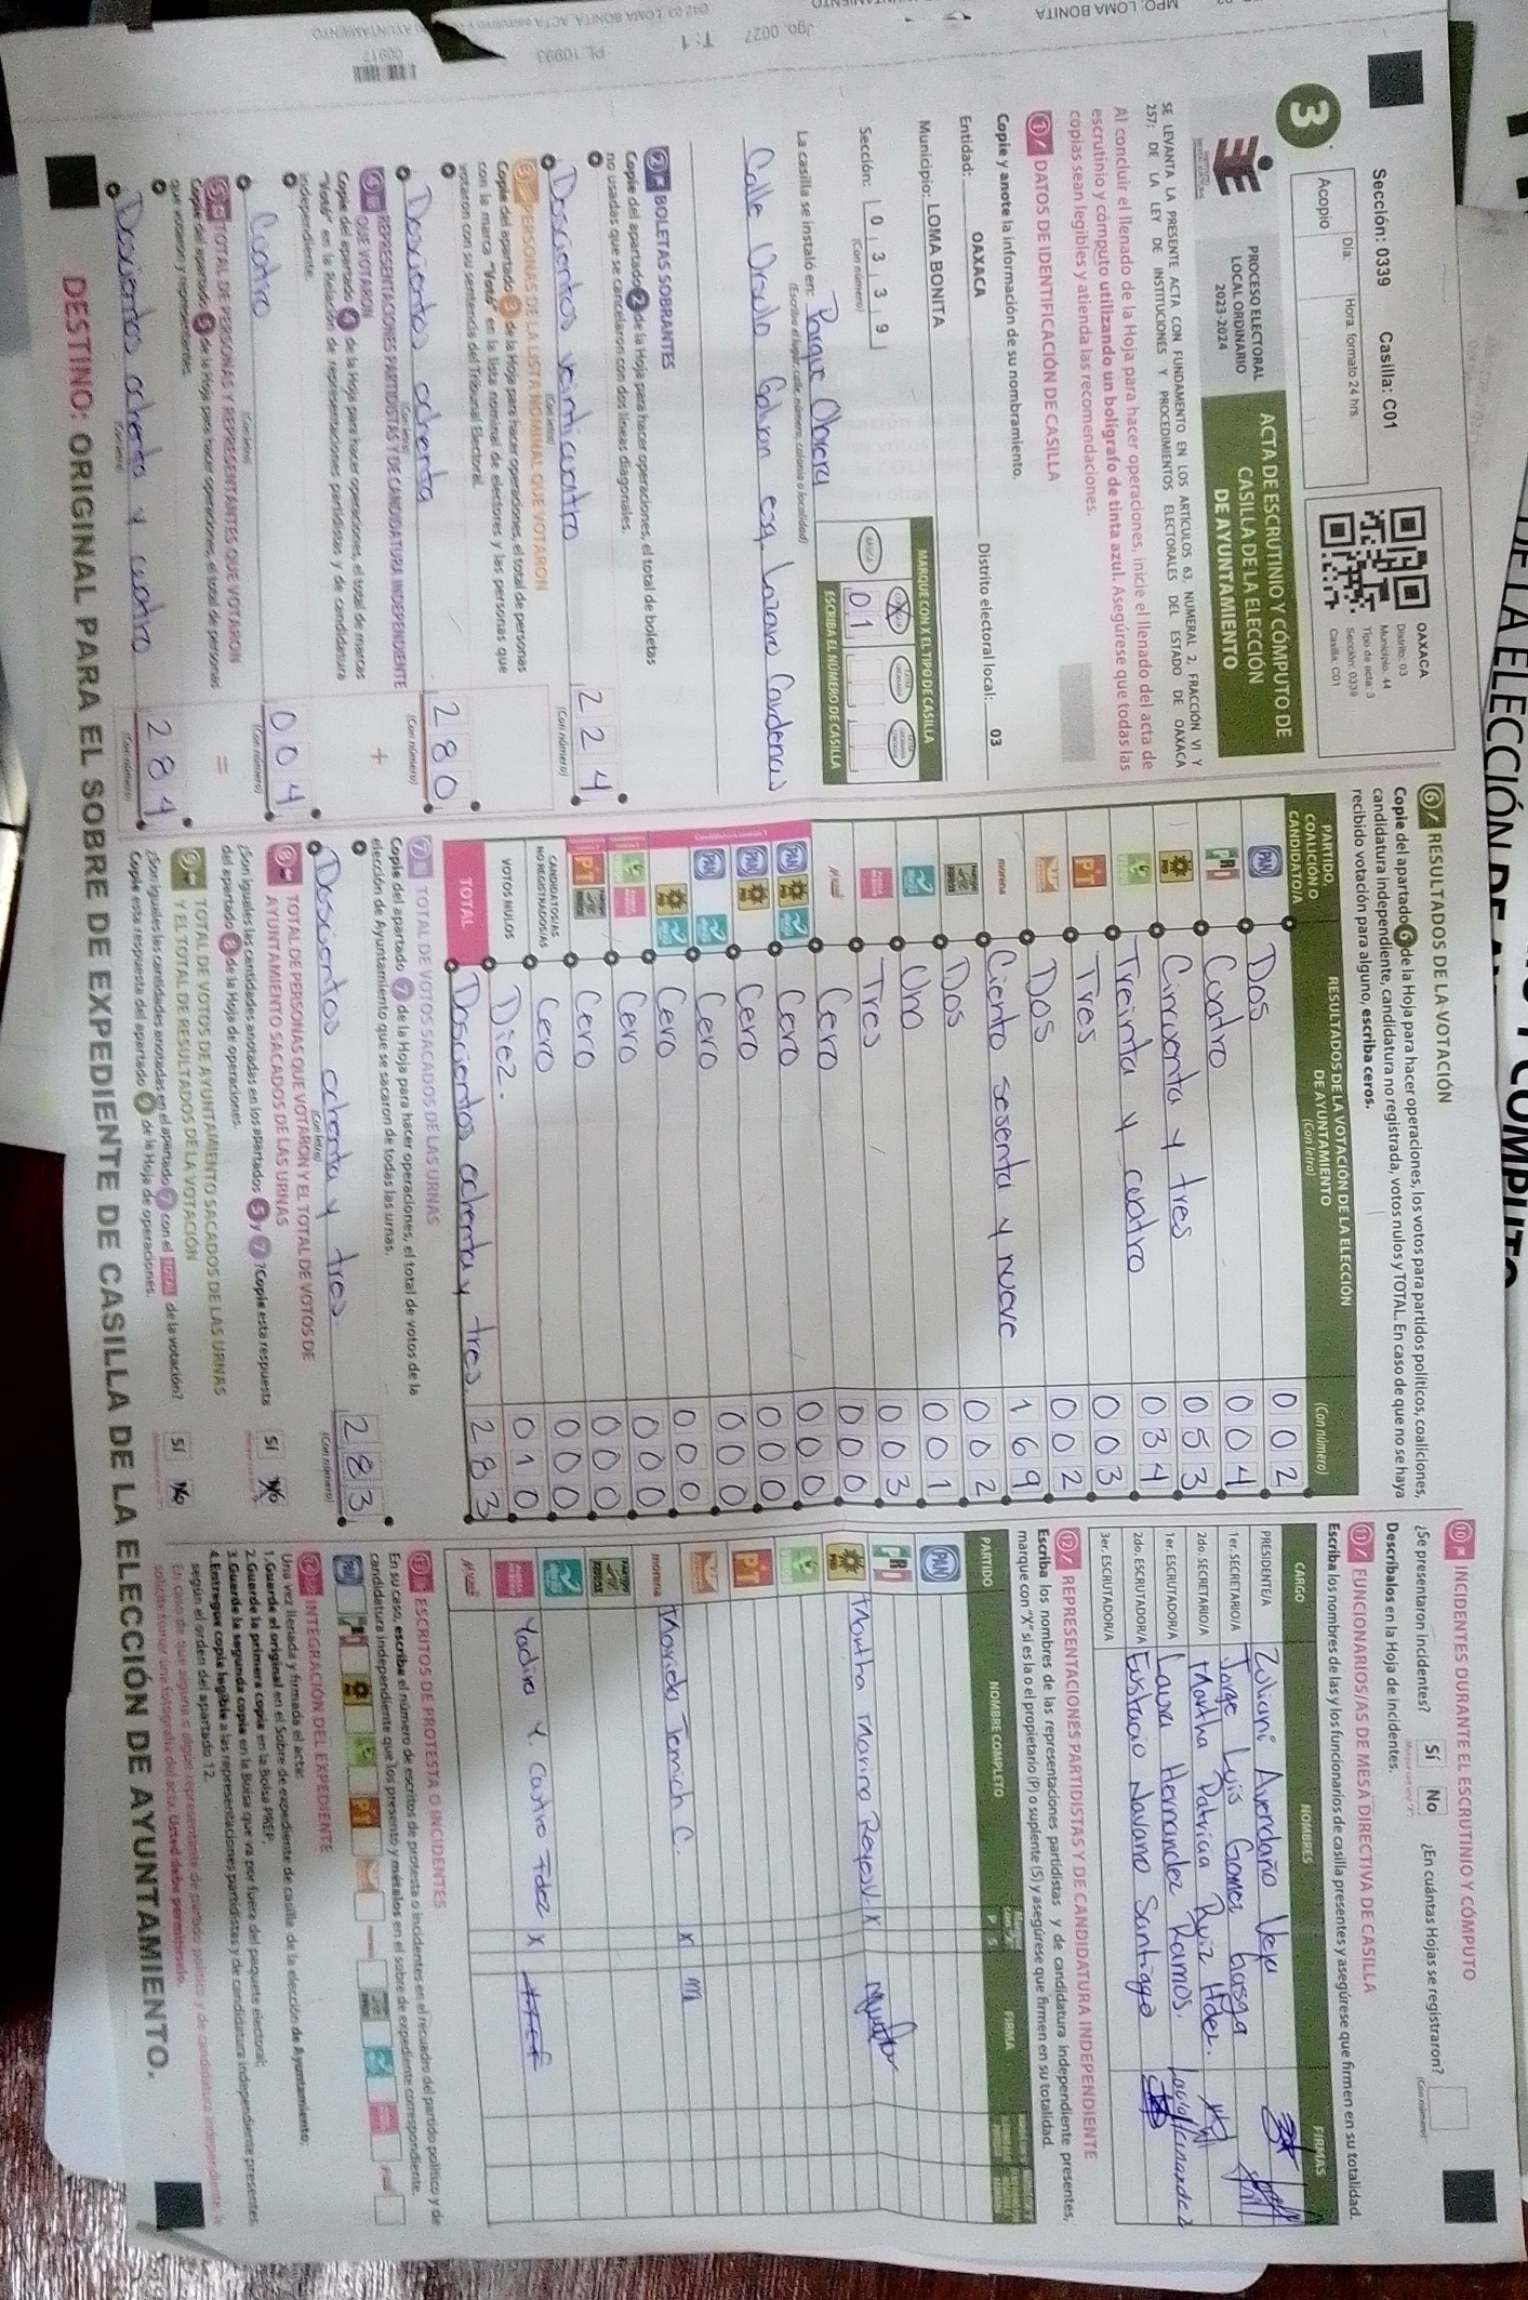 DE LA ELECCIÓN DE
Sección: 0339 Casilla: C01
Día: Hora, formato 24 hrs.
Acopio
OAXACA
Distrito: 03
Municipio: 44
Tipo de acta: 3
Sección: 0339
Casilla: C01
3
PROCESO ELECTORAL
LOCAL ORDINARIO
2023-2024
ACTA DE ESCRUTINIO Y CÓMPUTO DE
CASILLA DE LA ELECCIÓN
DE AYUNTAMIENTO
SE LEVANTA LA PRESENTE ACTA CON FUNDAMENTO EN LOS ARTÍCULOS 63, NUMERAL 2, FRACCIÓN VI Y
257; DE LA LEY DE INSTITUCIONES Y PROCEDIMIENTOS ELECTORALES DEL ESTADO DE OAXACA
Al concluir el llenado de la Hoja para hacer operaciones, inicie el llenado del acta de
escrutinio y cómputo utilizando un bolígrafo de tinta azul. Asegúrese que todas las
copias sean legibles y atienda las recomendaciones.
1 DATOS DE IDENTIFICACIÓN DE CASILLA
Copie y anote la información de su nombramiento.
Entidad: OAXACA Distrito electoral local: 03
Municipio: LOMA BONITA
MARQUE CON X EL TIPO DE CASILLA
Sección: 0 3 3 9
(Con número)
X
01
ESCRIBA EL NÚMERO DE CASILLA
La casilla se instaló en: Parque Obrera
(Escriba el lugar, calle, número, colonia o localidad)
Calle Úrsulo Galvan esq. Lazaro Cardenas
2 BOLETAS SOBRANTES
Copie del apartado 2 de la Hoja para hacer operaciones, el total de boletas
no usadas que se cancelaron con dos líneas diagonales.
Doscientos veinticuatro 224
(Con letra) (Con número)
3 PERSONAS DE LA LISTA NOMINAL QUE VOTARON
Copie del apartado 3 de la Hoja para hacer operaciones, el total de personas
con la marca "Votó" en la lista nominal de electores y las personas que
votaron con su sentencia del Tribunal Electoral.
Doscientos ochenta 280
(Con letra) (Con número)
4 REPRESENTACIONES PARTIDISTAS Y DE CANDIDATURA INDEPENDIENTE
QUE VOTARON +
Copie del apartado 4 de la Hoja para hacer operaciones, el total de marcas
"Votó" en la Relación de representaciones partidistas y de candidatura
independiente.
Cuatro 004
(Con letra) (Con número)
5 TOTAL DE PERSONAS Y REPRESENTANTES QUE VOTARON =
Copie del apartado 5 de la Hoja para hacer operaciones, el total de personas
que votaron y representantes.
Doscientos ochenta y cuatro 284
(Con letra) (Con número)
6 RESULTADOS DE LA VOTACIÓN
Copie del apartado 6 de la Hoja para hacer operaciones, los votos para partidos políticos, coaliciones,
candidatura independiente, candidatura no registrada, votos nulos y TOTAL. En caso de que no se haya
recibido votación para alguno, escriba ceros.
PARTIDO,
COALICIÓN O
CANDIDATO/A
RESULTADOS DE LA VOTACIÓN DE LA ELECCIÓN
DE AYUNTAMIENTO
(Con letra) (Con número)
PAN Dos 002
PRI Cuatro 004
PRD Cincuenta y tres 053
Treinta y cuatro 034
PT Tres 003
Dos 002
morena Ciento sesenta y nueve 169
Dos 002
Uno 001
Tres 003
Cero 000
Cero 000
Cero 000
Cero 000
Cero 000
Cero 000
Cero 000
CANDIDATOS/AS
NO REGISTRADOS/AS Cero 000
VOTOS NULOS Diez. 010
TOTAL Doscientos ochenta y tres. 283
7 TOTAL DE VOTOS SACADOS DE LAS URNAS
Copie del apartado 7 de la Hoja para hacer operaciones, el total de votos de la
elección de Ayuntamiento que se sacaron de todas las urnas.
Doscientos ochenta y tres. 283
(Con letra) (Con número)
8 TOTAL DE PERSONAS QUE VOTARON Y EL TOTAL DE VOTOS DE
AYUNTAMIENTO SACADOS DE LAS URNAS
¿Son iguales las cantidades anotadas en los apartados 5 y 7? Copie esta respuesta
del apartado 8 de la Hoja de operaciones. SÍ NO
9 TOTAL DE VOTOS DE AYUNTAMIENTO SACADOS DE LAS URNAS
Y EL TOTAL DE RESULTADOS DE LA VOTACIÓN
¿Son iguales las cantidades anotadas en el apartado 7 con el TOTAL de la votación? SÍ NO
Copie esta respuesta del apartado 9 de la Hoja de operaciones.
10 INCIDENTES DURANTE EL ESCRUTINIO Y CÓMPUTO
¿Se presentaron incidentes? Sí No ¿En cuántas Hojas se registraron?
(Con número)
Descríbalos en la Hoja de incidentes.
11 FUNCIONARIOS/AS DE MESA DIRECTIVA DE CASILLA
Escriba los nombres de las y los funcionarios de casilla presentes y asegúrese que firmen en su totalidad.
CARGO NOMBRES FIRMAS
PRESIDENTE/A Avendaño Vega
1er. SECRETARIO/A Jorge Luis Gomez
2do. SECRETARIO/A Martha Patricia Ruiz Hdez.
1er. ESCRUTADOR/A Laura Hernandez Ramos.
2do. ESCRUTADOR/A Eustacio Navarro Santiago
3er. ESCRUTADOR/A
12 REPRESENTACIONES PARTIDISTAS Y DE CANDIDATURA INDEPENDIENTE
Escriba los nombres de las representaciones partidistas y de candidatura independiente presentes,
marque con "X" si es la o el propietario (P) o suplente (S) y asegúrese que firmen en su totalidad.
PARTIDO NOMBRE COMPLETO P S FIRMA
PAN
PRI
PRD Martha X
PT
morena Temich C. X
Yadira Y. Castro Fdez X
13 ESCRITOS DE PROTESTA O INCIDENTES
En su caso, escriba el número de escritos de protesta o incidentes en el recuadro del partido político y de
candidatura independiente que los presentó y métalos en el sobre de expediente correspondiente.
14 INTEGRACIÓN DEL EXPEDIENTE
Una vez llenada y firmada el acta:
1. Guarde el original en el Sobre de expediente de casilla de la elección de Ayuntamiento;
2. Guarde la primera copia en la Bolsa PREP;
3. Guarde la segunda copia en la Bolsa que va por fuera del paquete electoral;
4. Entregue copia legible a las representaciones partidistas y de candidatura independiente presentes,
según el orden del apartado 12.
En caso de que alguna o algún representante de partido político y de candidatura independiente le
solicite tomar una fotografía del acta, Usted debe permitírselo.
DESTINO: ORIGINAL PARA EL SOBRE DE EXPEDIENTE DE CASILLA DE LA ELECCIÓN DE AYUNTAMIENTO.
MPO: LOMA BONITA
Jgo. 0027 T: 1
PL 10993
00917